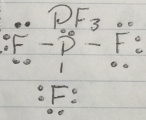 PF₃
:F̈ - P̈ - F̈:
|
:F̈: